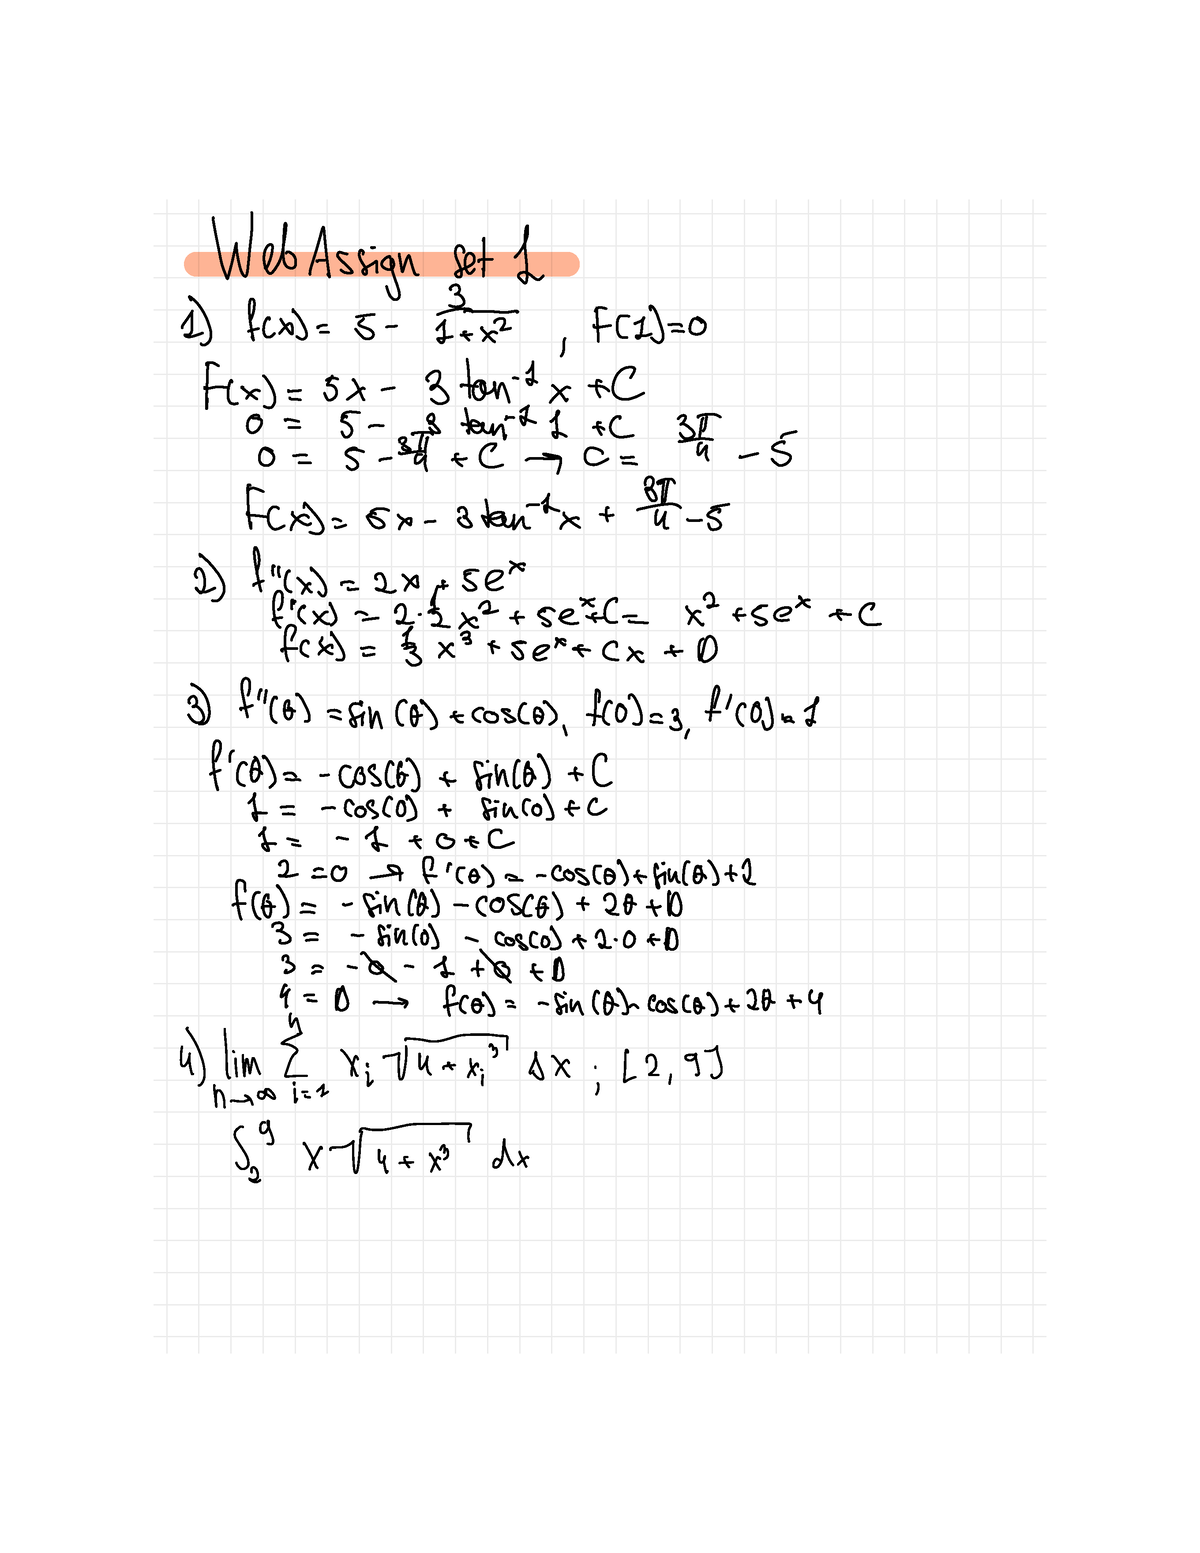 WebAssign set 1
1) f(x) = 5 - 3/(1+x²) , F(1)=0
F(x) = 5x - 3 tan⁻¹ x + C
0 = 5 - 3 tan⁻¹ 1 + C
0 = 5 - 3π/4 + C → C = 3π/4 - 5
F(x) = 5x - 3 tan⁻¹ x + 3π/4 - 5
2) f''(x) = 2x + 5eˣ
f'(x) = 2·1/2 x² + 5eˣ + C = x² + 5eˣ + C
f(x) = 1/3 x³ + 5eˣ + Cx + D
3) f''(θ) = sin(θ) + cos(θ), f(0)=3, f'(0)=1
f'(θ) = -cos(θ) + sin(θ) + C
1 = -cos(0) + sin(0) + C
1 = -1 + 0 + C
2 = 0 → f'(θ) = -cos(θ) + sin(θ) + 2
f(θ) = -sin(θ) - cos(θ) + 2θ + D
3 = -sin(0) - cos(0) + 2·0 + D
3 = -0 - 1 + 0 + D
4 = D → f(θ) = -sin(θ) - cos(θ) + 2θ + 4
4) lim n→∞ Σ i=1 n xᵢ √(4 + xᵢ³) Δx ; [2, 9]
∫₂⁹ x √(4 + x³) dx